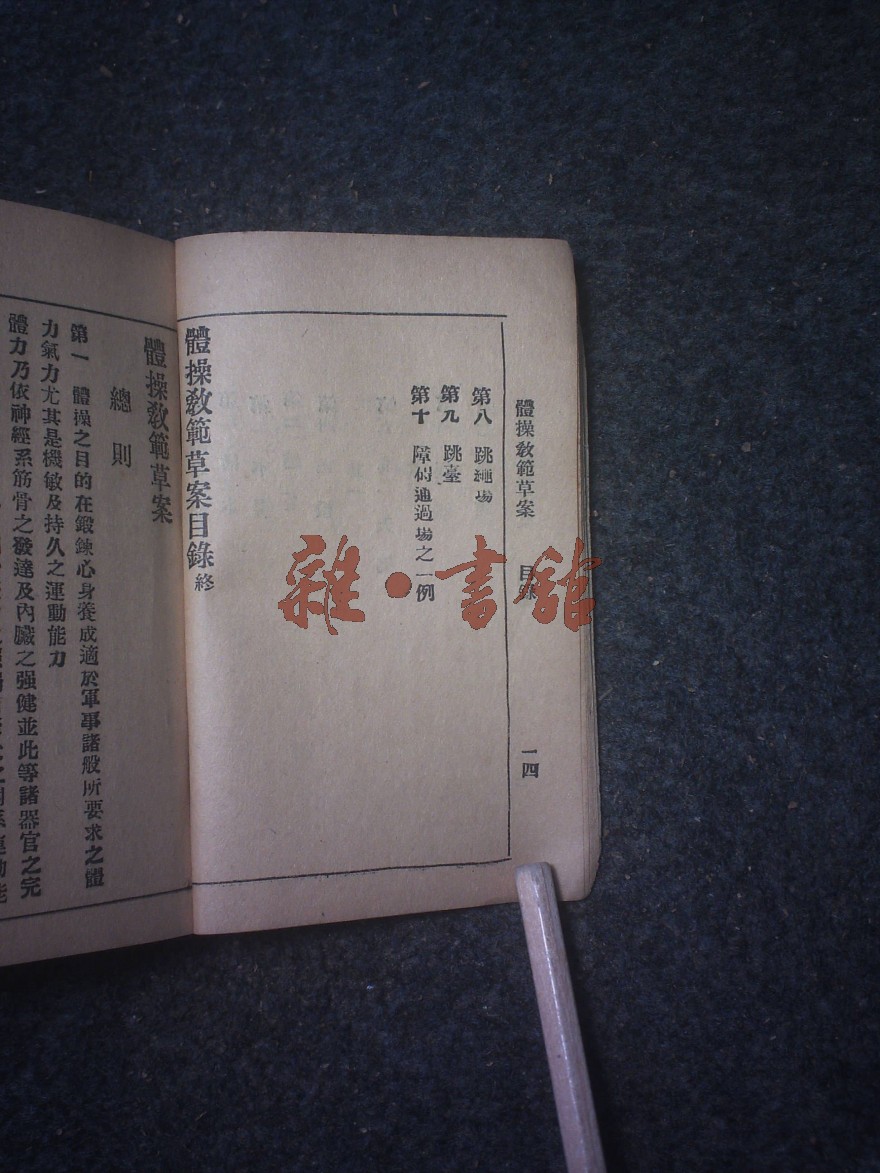 體操教範草案　目錄　一四
第八　跳繩場
第九　跳臺
第十　障碍通過場之一例
體操教範草案目錄終
體操教範草案
總則
第一　體操之目的在鍛鍊心身養成適於軍事諸般所要求之體
力氣力尤其是機敏及持久之運動能力
體力乃依神經系筋骨之發達及內臟之强健並此等諸器官之完
雜·書館